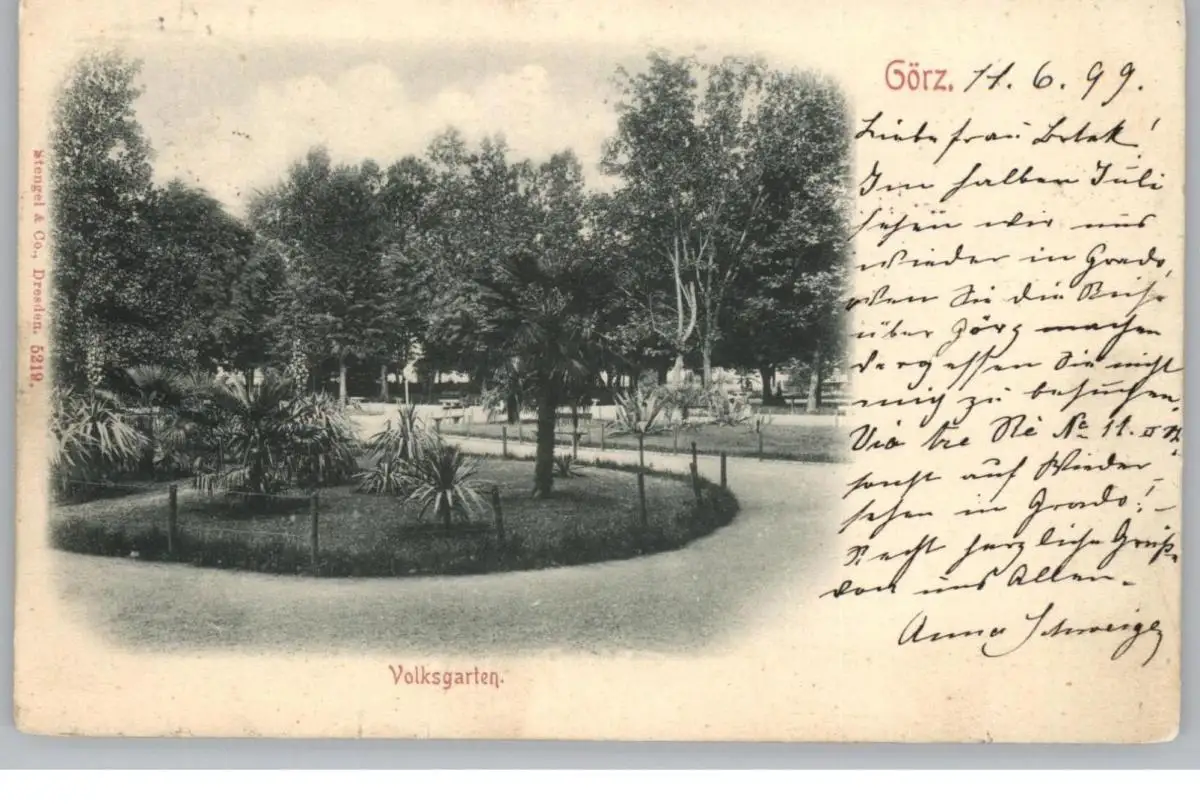 Görz. 11. 6. 99.
Liebe Frau
Im halben Juli
sehen wir uns
wieder in Grado,
wen Sie die Reise
über Görz machen
vergessen Sie nicht
mich zu besuchen,
Via tre Re No 11. II
sonst auf Wieder
sehen in Grado! –
Recht herzliche Grüße
von uns Allen –
Anna
Stengel & Co., Dresden. 5219.
Volksgarten.